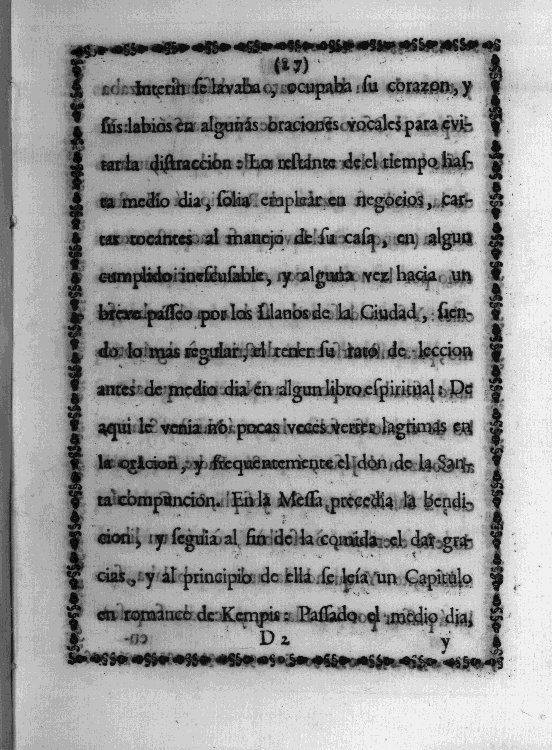 (27)
Interin se lavaba, ocupaba su corazon, y
sus labios en algunas oraciones vocales para evi-
tar la distraccion: Lo restante de el tiempo has-
ta medio dia, solia emplear en negocios, car-
tas tocantes al manejo de su casa, en algun
cumplido inescusable, y alguna vez hacia un
breve passeo por los Ilanos de la Ciudad, sien-
do lo mas regular, el tener su rato de leccion
antes de medio dia en algun libro espiritual: De
aqui le venia no pocas veces verter lagrimas en
la oracion, y frequentemente el don de la San-
ta compuncion. En la Messa precedia la bendi-
cion, y seguia al fin de la comida el dar gra-
cias, y al principio de ella se leía un Capitulo
en romance de Kempis: Passado el medio dia,
D 2 y